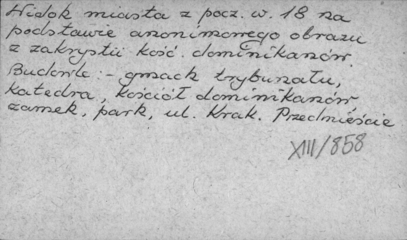 Widok miasta z pocz. w. 18 na
podstawie anonimowego obrazu
z zakrystii kość. dominikanów.
Budowle: - gmach trybunału,
katedra, kościół dominikanów
zamek, park, ul. Krak. Przedmieście
XIII/858